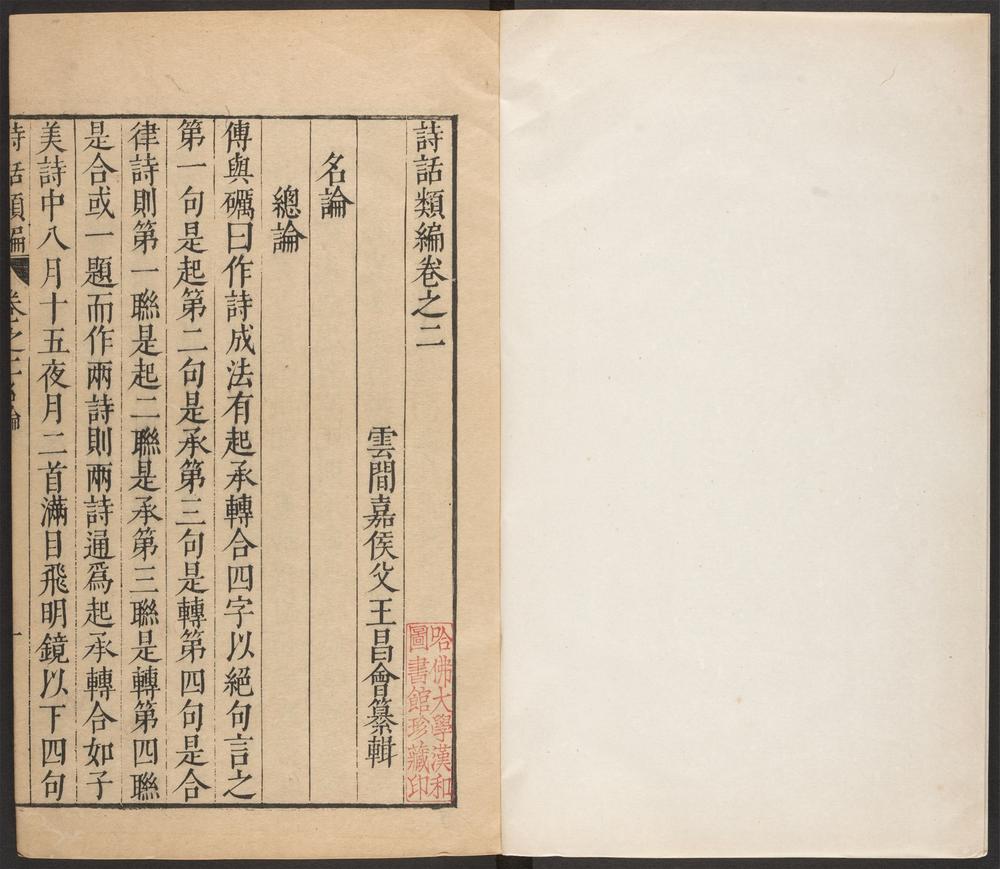 詩話類編卷之二
哈佛大學漢和
圖書館珍藏印
雲間嘉侯父王昌會纂輯
名論
總論
傅與礪曰作詩成法有起承轉合四字以絕句言之
第一句是起第二句是承第三句是轉第四句是合
律詩則第一聯是起二聯是承第三聯是轉第四聯
是合或一題而作兩詩則兩詩通爲起承轉合如子
美詩中八月十五夜月二首滿目飛明鏡以下四句
詩話類編 卷之二名論 一